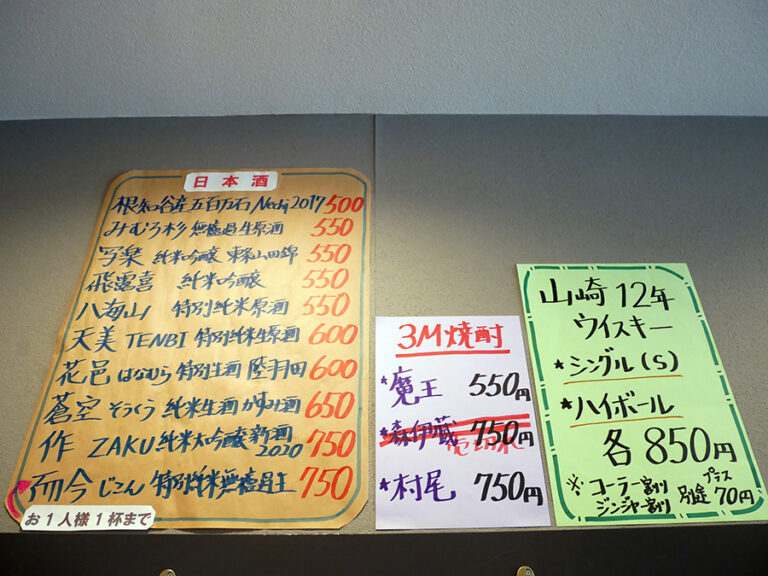 日本酒
根知谷産五百万石 Nechi 2017 500
みむろ杉 無濾過生原酒 550
写楽 純米吟醸 東条山田錦 550
飛露喜 純米吟醸 550
八海山 特別純米原酒 550
天美 TENBI 特別純米生原酒 600
花邑 はなむら 特別生酒 陸羽田 600
蒼空 そうくう 純米生酒 かすみ酒 650
作 ZAKU 純米大吟醸 新酒 2020 750
而今 じこん 特別純米無濾過生 750
お1人様1杯まで
3M焼酎
★魔王 550円
★森伊蔵 750円
売り切れ
★村尾 750円
山崎12年
ウイスキー
★シングル(S)
★ハイボール
各850円
※コーラー割り
ジンジャー割り
別途プラス70円